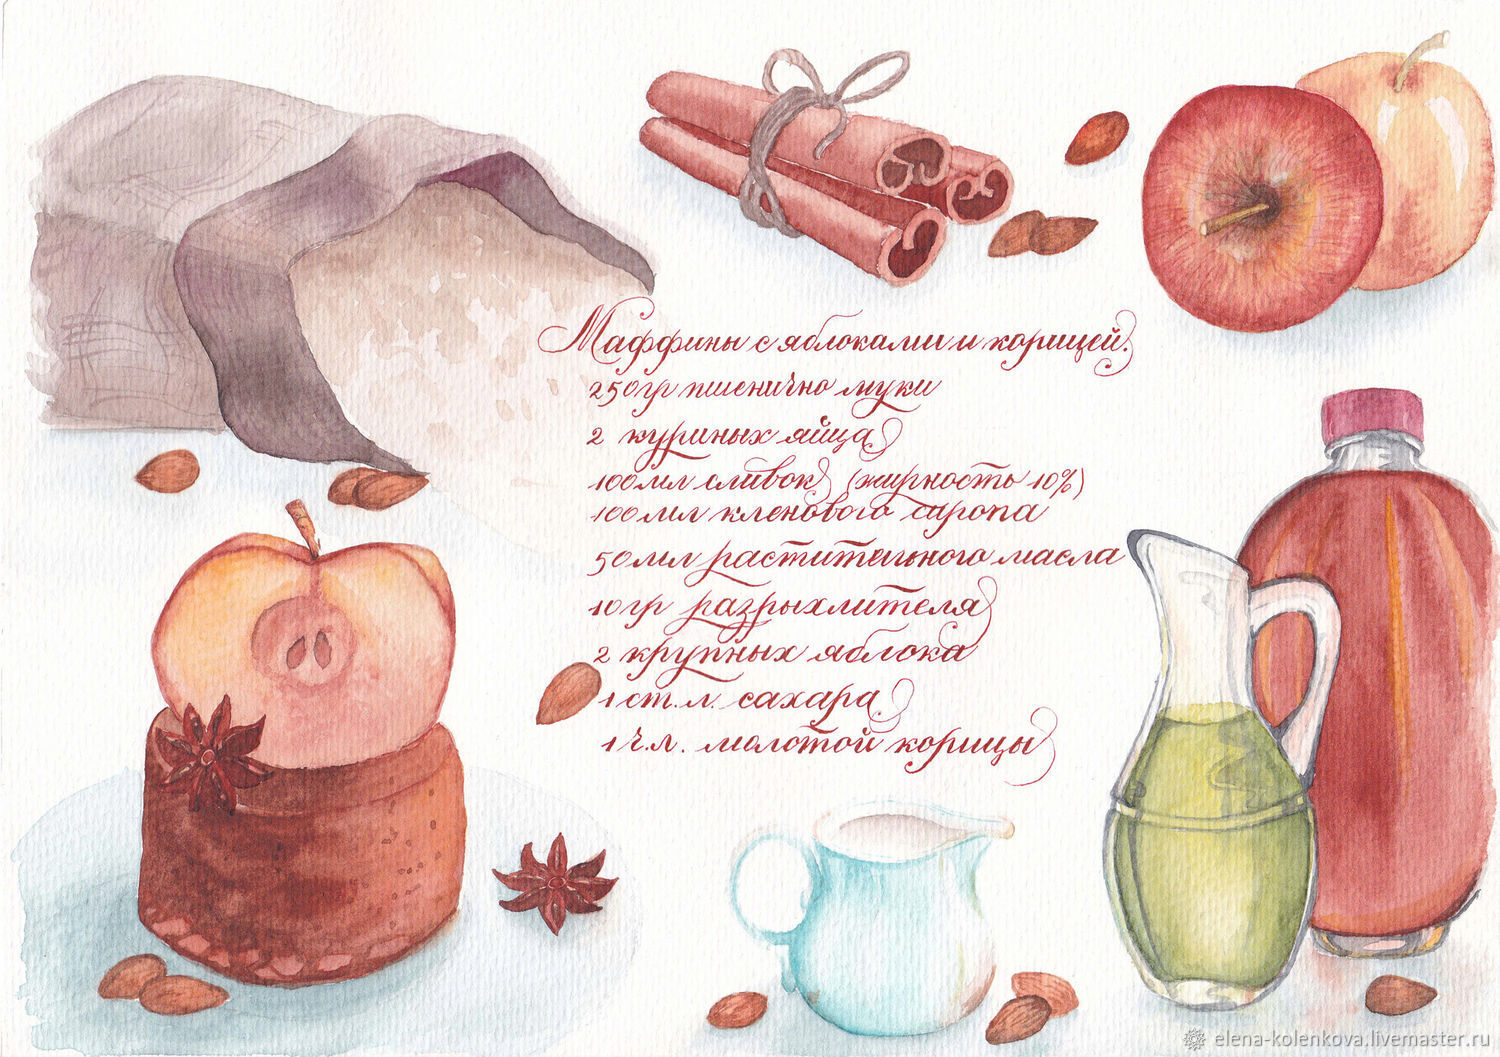 Маффины с яблоками и корицей.
250гр пшенично муки
2 куриных яйца
100мл сливок (жирность 10%)
100мл кленового сиропа
50мл растительного масла
10гр разрыхлителя
2 крупных яблока
1 ст. л. сахара
1 ч.л. молотой корицы
elena-kolenkova.livemaster.ru